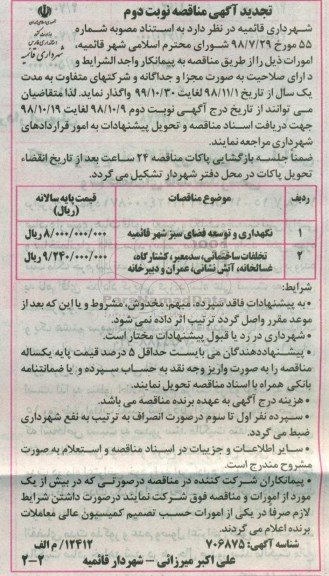 تجدید آگهی مناقصه نوبت دوم
شهرداری قائمیه
شهرداری قائمیه در نظر دارد به استناد مصوبه شماره
۵۵ مورخ ۹۸/۷/۲۹ شورای محترم اسلامی شهر قائمیه،
امورات ذیل را از طریق مناقصه به پیمانکار واجد الشرایط و
دارای صلاحیت به صورت مجزا و جداگانه و شرکتهای متفاوت به مدت
یک سال از تاریخ ۹۸/۱۱/۱ لغایت ۹۹/۱۰/۳۰ واگذار نماید. لذا متقاضیان
می توانند از تاریخ درج آگهی نوبت دوم ۹۸/۱۰/۹ لغایت ۹۸/۱۰/۱۹
جهت دریافت اسناد مناقصه و تحویل پیشنهادات به امور قراردادهای
شهرداری مراجعه نمایند.
ضمناً جلسه بازگشایی پاکات مناقصه ۲۴ ساعت بعد از تاریخ انقضاء
تحویل پاکات در محل دفتر شهردار تشکیل می گردد.
ردیف موضوع مناقصات قیمت پایه سالانه (ریال)
۱ نگهداری و توسعه فضای سبز شهر قائمیه ۸/۰۰۰/۰۰۰/۰۰۰ ریال
۲ تخلفات ساختمانی، سدمعبر، کشتارگاه، غسالخانه، آتش نشانی، عمران و دبیرخانه ۹/۲۴۰/۰۰۰/۰۰۰ ریال
شرایط:
- به پیشنهادات فاقد سپرده، مبهم، مخدوش، مشروط و یا این که بعد از
موعد مقرر واصل گردد ترتیب اثر داده نمی شود.
- شهرداری در رد یا قبول پیشنهادات مختار است.
- پیشنهاددهندگان می بایست حداقل ۵ درصد قیمت پایه یکساله
مناقصه را به صورت واریز وجه نقد به حساب سپرده و یا ضمانتنامه
بانکی همراه با اسناد مناقصه تحویل نمایند.
- هزینه درج آگهی به عهده برنده مناقصه می باشد.
- سپرده نفر اول تا سوم درصورت انصراف به ترتیب به نفع شهرداری
ضبط می گردد.
- سایر اطلاعات و جزییات در اسناد مناقصه و استعلام به صورت
مشروح مندرج است.
- پیمانکاران شرکت کننده در مناقصه درصورتی که در بیش از یک
مورد از امورات و مناقصه فوق شرکت نمایند درصورت داشتن شرایط
لازم صرفا در یکی از امورات حسب تصمیم کمیسیون عالی معاملات
برنده اعلام می گردند.
شناسه آگهی: ۷۰۶۸۷۵ ۱۲۴۱۲/ م الف
علی اکبر میرزائی - شهردار قائمیه ۲-۲